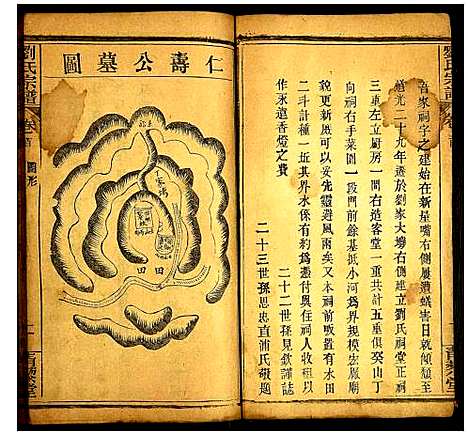 吾家祠宇之建始在新星嘴右側屢遭蟻害日就傾頹至
道光二十九年遷於劉家大塆右側建立劉氏祠堂正祠
三重左立廚房一間右造客堂一重共計五重俱癸山丁
向祠右手菜園一段門前餘基抵小河為界規模宏厰廟
貌更新既可以妥先靈避風雨矣又本祠前畈置有水田
二斗計種一坵其界水係有約為憑付與住祠人收租以
作永遠香燈之費
二十二世孫見欽謹誌
二十三世孫思忠直浦氏敬題
仁壽公墓圖
田
田
劉氏宗譜
卷首
圖形
青藜堂